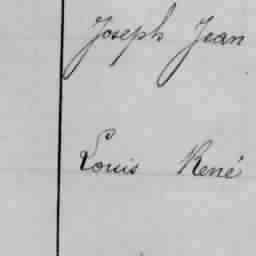 Joseph Jean
Louis René